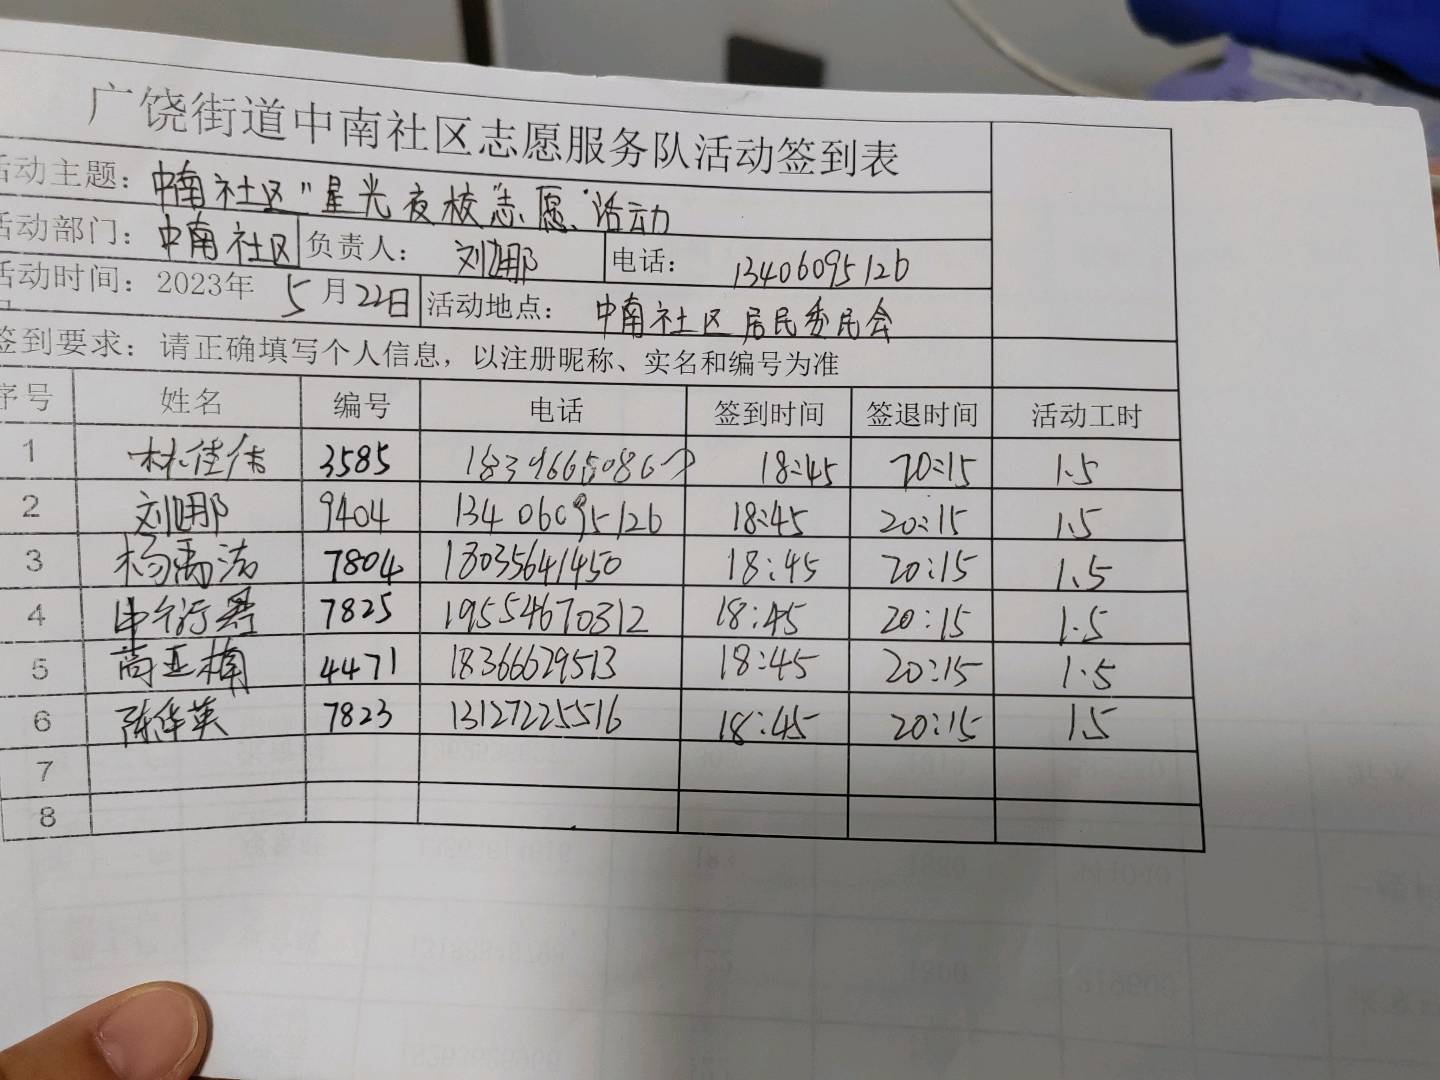 广饶街道中南社区志愿服务队活动签到表
活动主题：中南社区"星光夜校"志愿活动
活动部门：中南社区 负责人：刘娜 电话：13406095126
活动时间：2023年5月22日 活动地点：中南社区居民委员会
签到要求：请正确填写个人信息，以注册昵称、实名和编号为准
序号 姓名 编号 电话 签到时间 签退时间 活动工时
1 林佳伟 3585 18:45 20:15 1.5
2 刘娜 9404 13406095126 18:45 20:15 1.5
3 杨禹洁 7804 18035641450 18:45 20:15 1.5
4 7825 19554670312 18:45 20:15 1.5
5 尚亚楠 4471 18366629513 18:45 20:15 1.5
6 陈华英 7823 13127225516 18:45 20:15 1.5
7
8